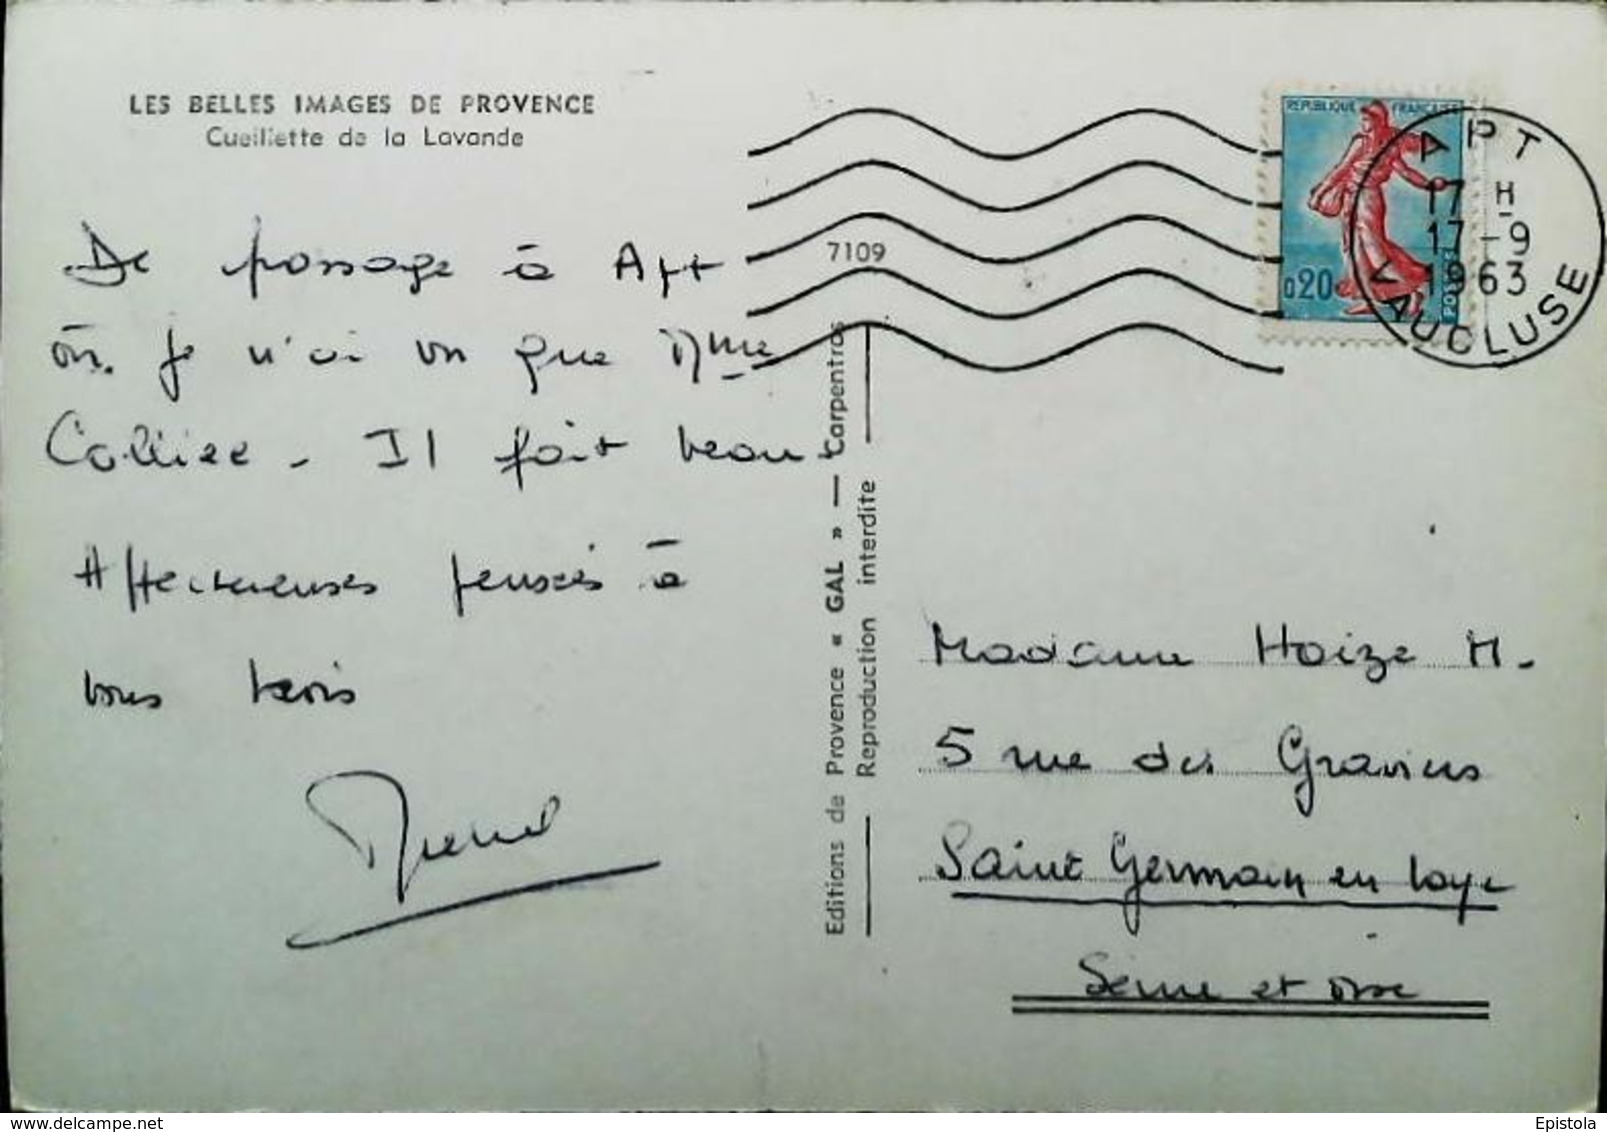 LES BELLES IMAGES DE PROVENCE
Cueillette de la Lavande
De passage à Apt
où je n'ai vu que Mme
Collier - Il fait beau
Affectueuses pensées à
vous trois
7109
Editions de Provence « GAL » — Carpentras
Reproduction interdite
REPUBLIQUE FRANÇAISE
0,20
POSTES
APT
17 H
17-9
1963
VAUCLUSE
Madame Hoize M.
5 rue des Graviers
Saint Germain en Laye
Seine et Oise
delcampe.net
Epistola